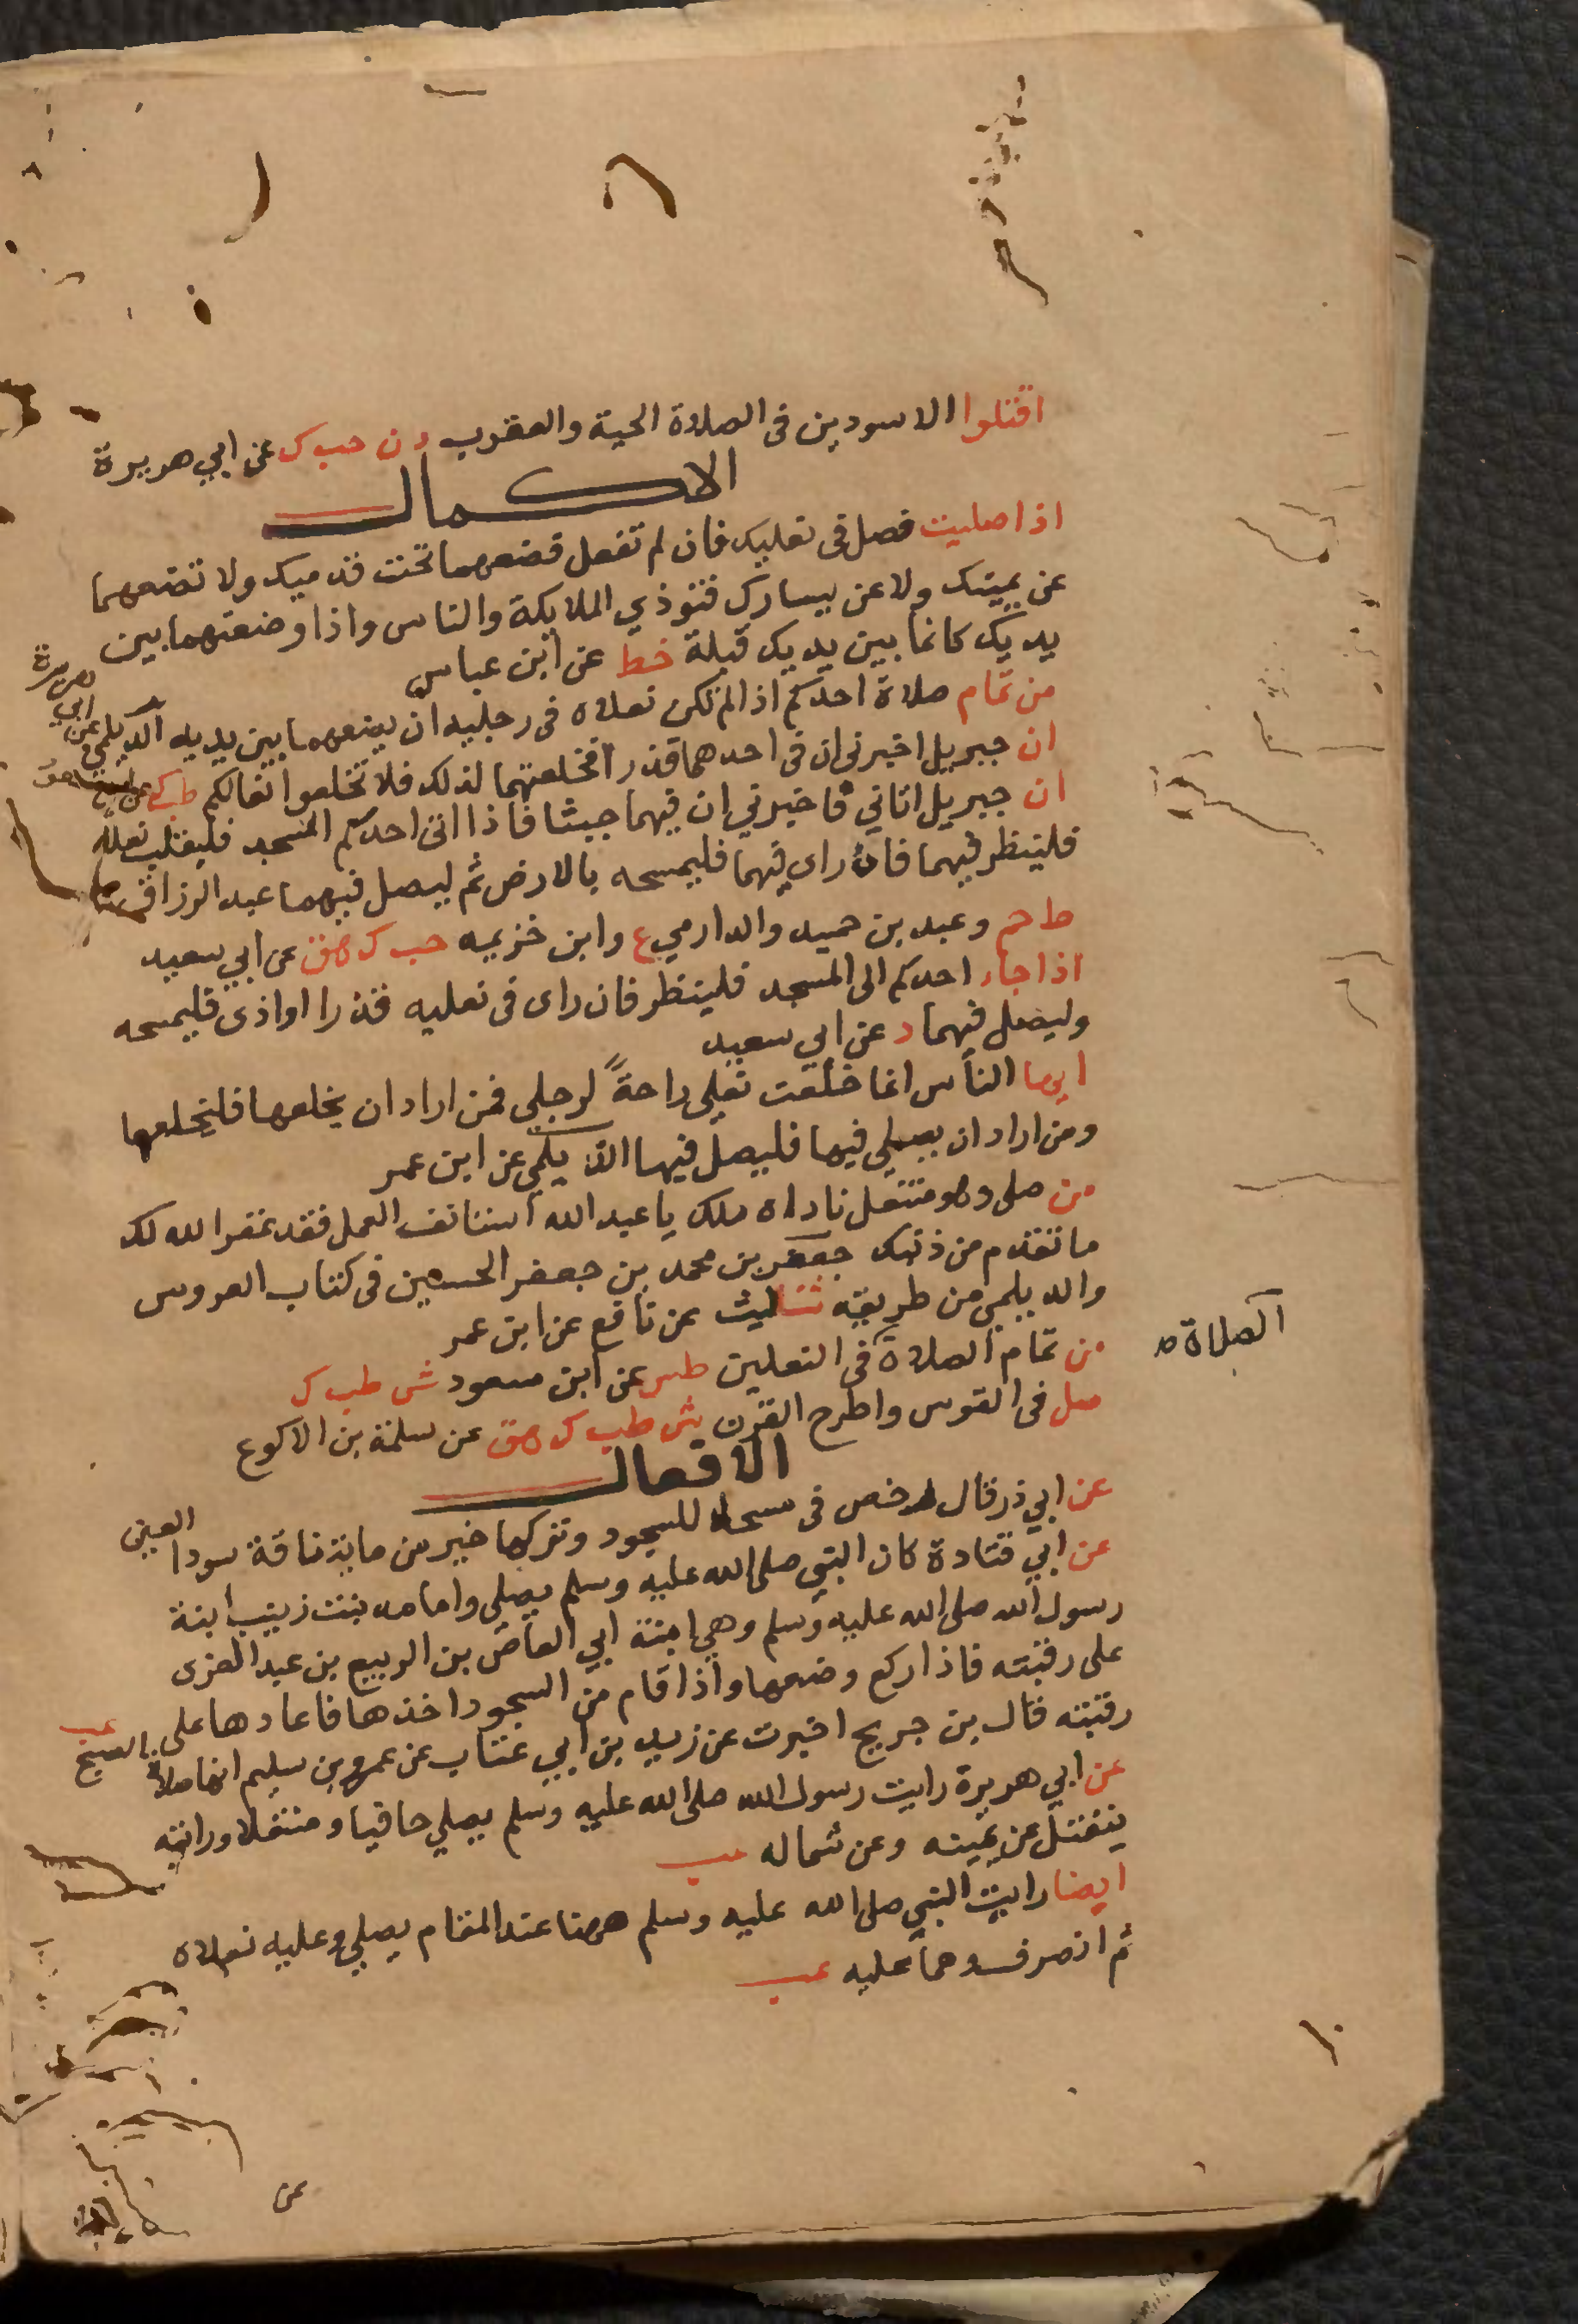 اقتلوا الاسودين فى الصلاة الحية والعقرب د ن حب ك عن ابي هريرة
الاكمال
اذا صليت فصل فى نعليك فان لم تفعل فضعهما تحت قدميك ولا تضعهما
عن يمينك ولا عن يسارك فتوذي الملايكة والناس واذا وضعتهما بين
يديك كانما بين يديك قبلة خط عن ابن عباس
من تمام صلاة احدكم اذا لم تكن نعلاه فى رجليه ان يضعهما بين يديه الديلمي عن ابي هريرة
ان جبريل اخبرنى ان فى احدهما قذرا فخلعتهما لذلك فلا تخلعوا نعالكم طب عن
ان جبريل اتاني فاخبرني ان فيهما خبثا فاذا اتى احدكم المسجد فليقلب نعله
فلينظر فيهما فان راى فيهما فليمسحه بالارض ثم ليصل فيهما عبد الرزاق
ط حم وعبد بن حميد والدارمي ع وابن خزيمه حب ك هق عن ابي سعيد
اذا جاء احدكم الى المسجد فلينظر فان راى فى نعليه قذرا او اذى فليمسحه
وليصل فيهما د عن ابي سعيد
ايها الناس انما خلعت نعلي راحةً لرجلي فمن اراد ان يخلعها فليخلعها
ومن اراد ان يصلي فيها فليصل فيها الديلمي عن ابن عمر
من صلى وهو منتعل ناداه ملك يا عبد الله استانف العمل فقد غفر الله لك
ما تقدم من ذنبك جعفر بن محمد بن جعفر الحسين فى كتاب العروس
والديلمي من طريقه ثنا ليث عن نافع عن ابن عمر
من تمام الصلاة فى النعلين طس عن ابن مسعود ش طب ك
الصلاة ص
صل فى القوس واطرح القرن ش طب ك هق عن سلمة بن الاكوع
الافعال
عن ابي ذر قال رخص فى مسحه للسجود وتركها خير من ماية ناقة سودا العين
عن ابي قتادة كان النبي صلى الله عليه وسلم يصلي وامامه بنت زينب ابنة
رسول الله صلى الله عليه وسلم وهي ابنة ابي العاص بن الربيع بن عبد العزى
على رقبته فاذا ركع وضعها واذا قام من السجود اخذها فاعادها على
رقبته قال بن جريج اخبرت عن زيد بن ابي عتاب عن عمرو بن سليم انها صلاة الصبح عب
عن ابي هريرة رايت رسول الله صلى الله عليه وسلم يصلي حافيا ومنتعلا ورايته
ينفتل عن يمينه وعن شماله عب
ايضا رايت النبي صلى الله عليه وسلم ههنا عند المقام يصلي وعليه نعلاه
ثم انصرف وهما عليه عب
عن